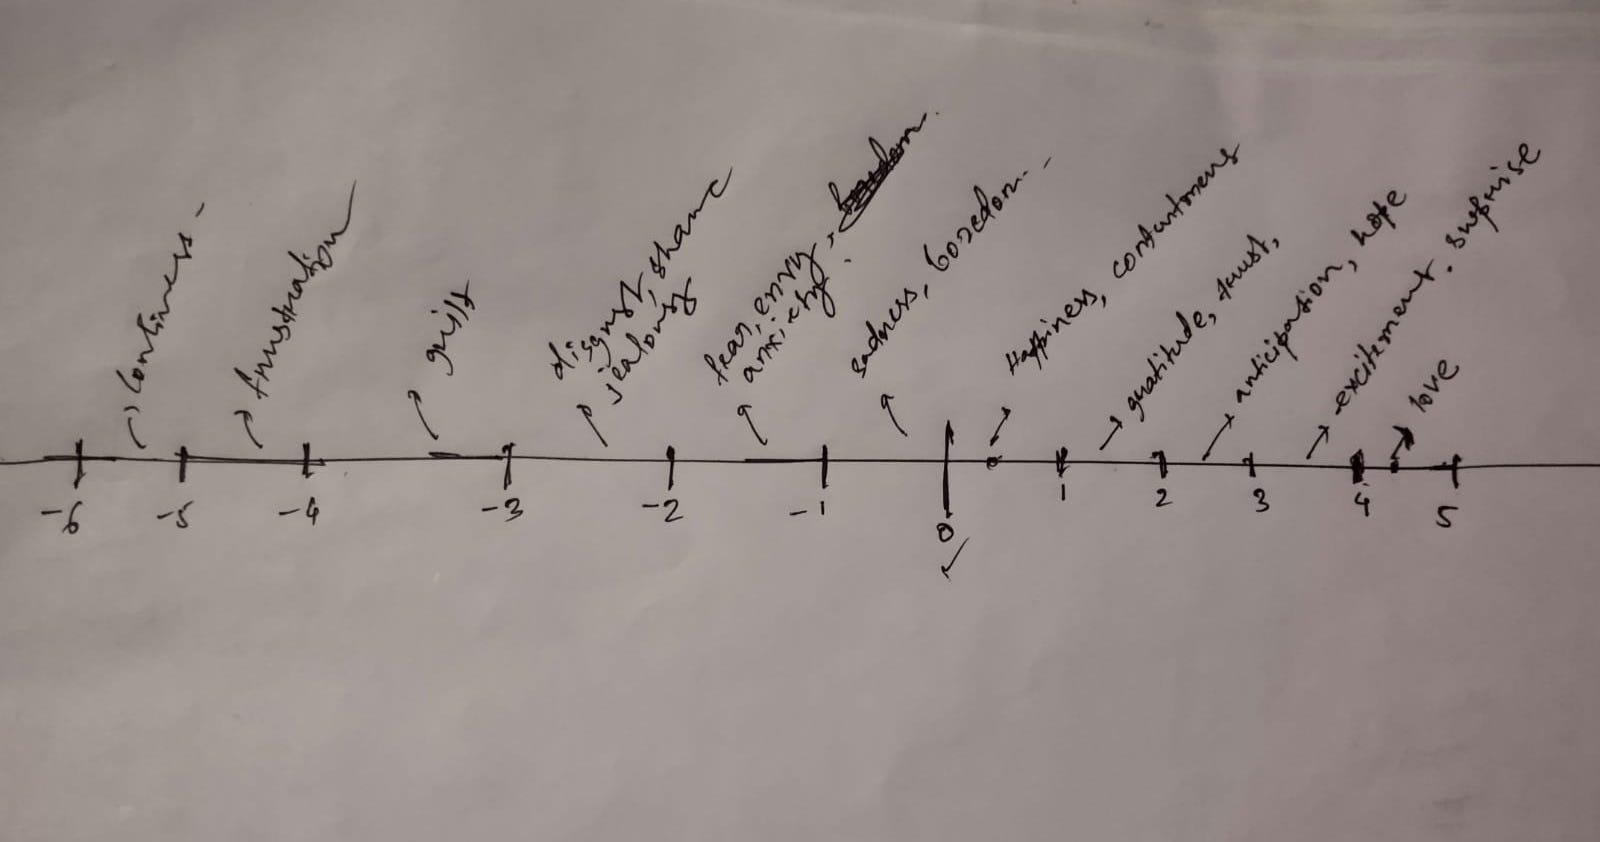 lonliness -
frustration
guilt
disgust, shame
jealousy
fear, envy,
anxiety.
sadness, boredom..
Happiness, contentment
gratitude, trust,
anticipation, hope
excitement. suprise
love
-6 -5 -4 -3 -2 -1 0 1 2 3 4 5